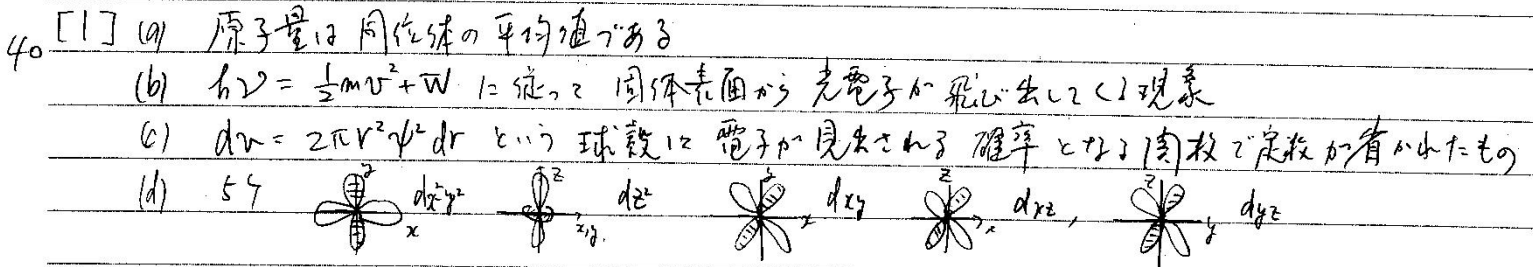 40 [1] (a) 原子量は同位体の平均値である
(b) hν = 1/2 mv² + W に従って 固体表面から光電子が飛び出してくる現象
(c) dn = 2πr²ψ²dr という球殻に電子が見出される確率となる関数で定数が省かれたもの
(d) 5つ y x dx²-y² z x,y. dz² y x dxy z x dxz, z y dyz